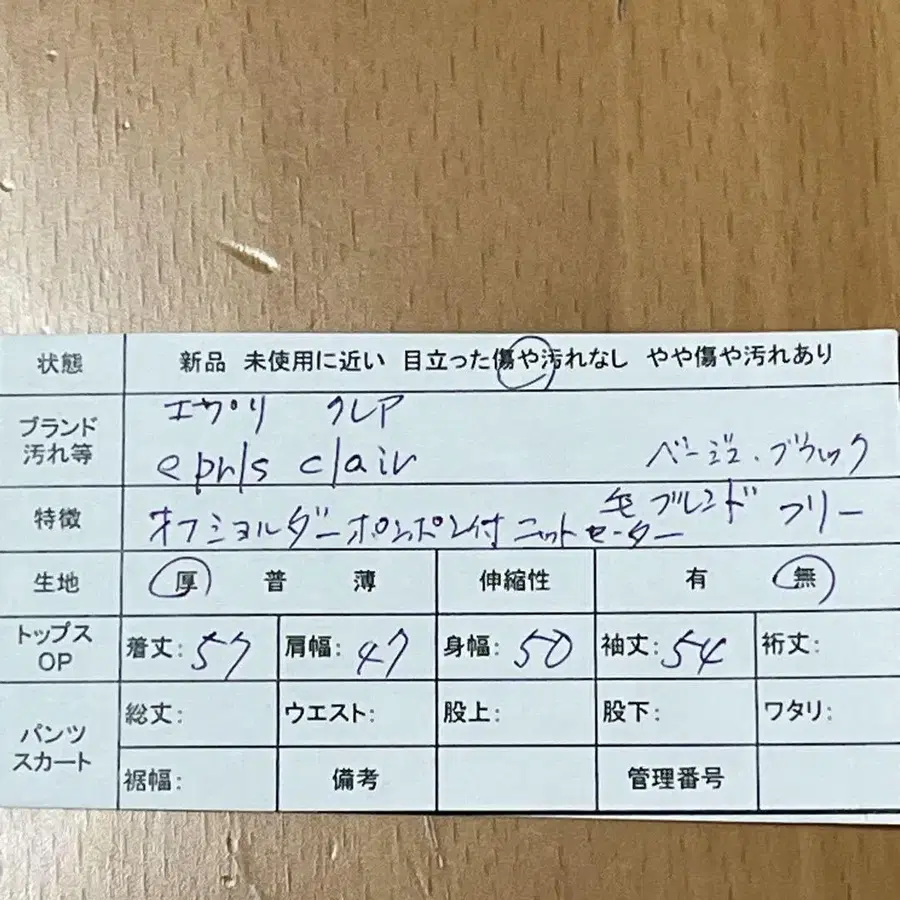 状態 新品 未使用に近い 目立った傷や汚れなし やや傷や汚れあり
ブランド
汚れ等
エプリ クレア
epris clair ベージュ.ブラック
特徴
毛ブレンド フリー
オフショルダーポンポン付ニットセーター
生地 厚 普 薄 伸縮性 有 無
トップス
OP
着丈: 57 肩幅: 47 身幅: 50 袖丈: 54 裄丈:
パンツ
スカート
総丈: ウエスト: 股上: 股下: ワタリ:
裾幅: 備考 管理番号